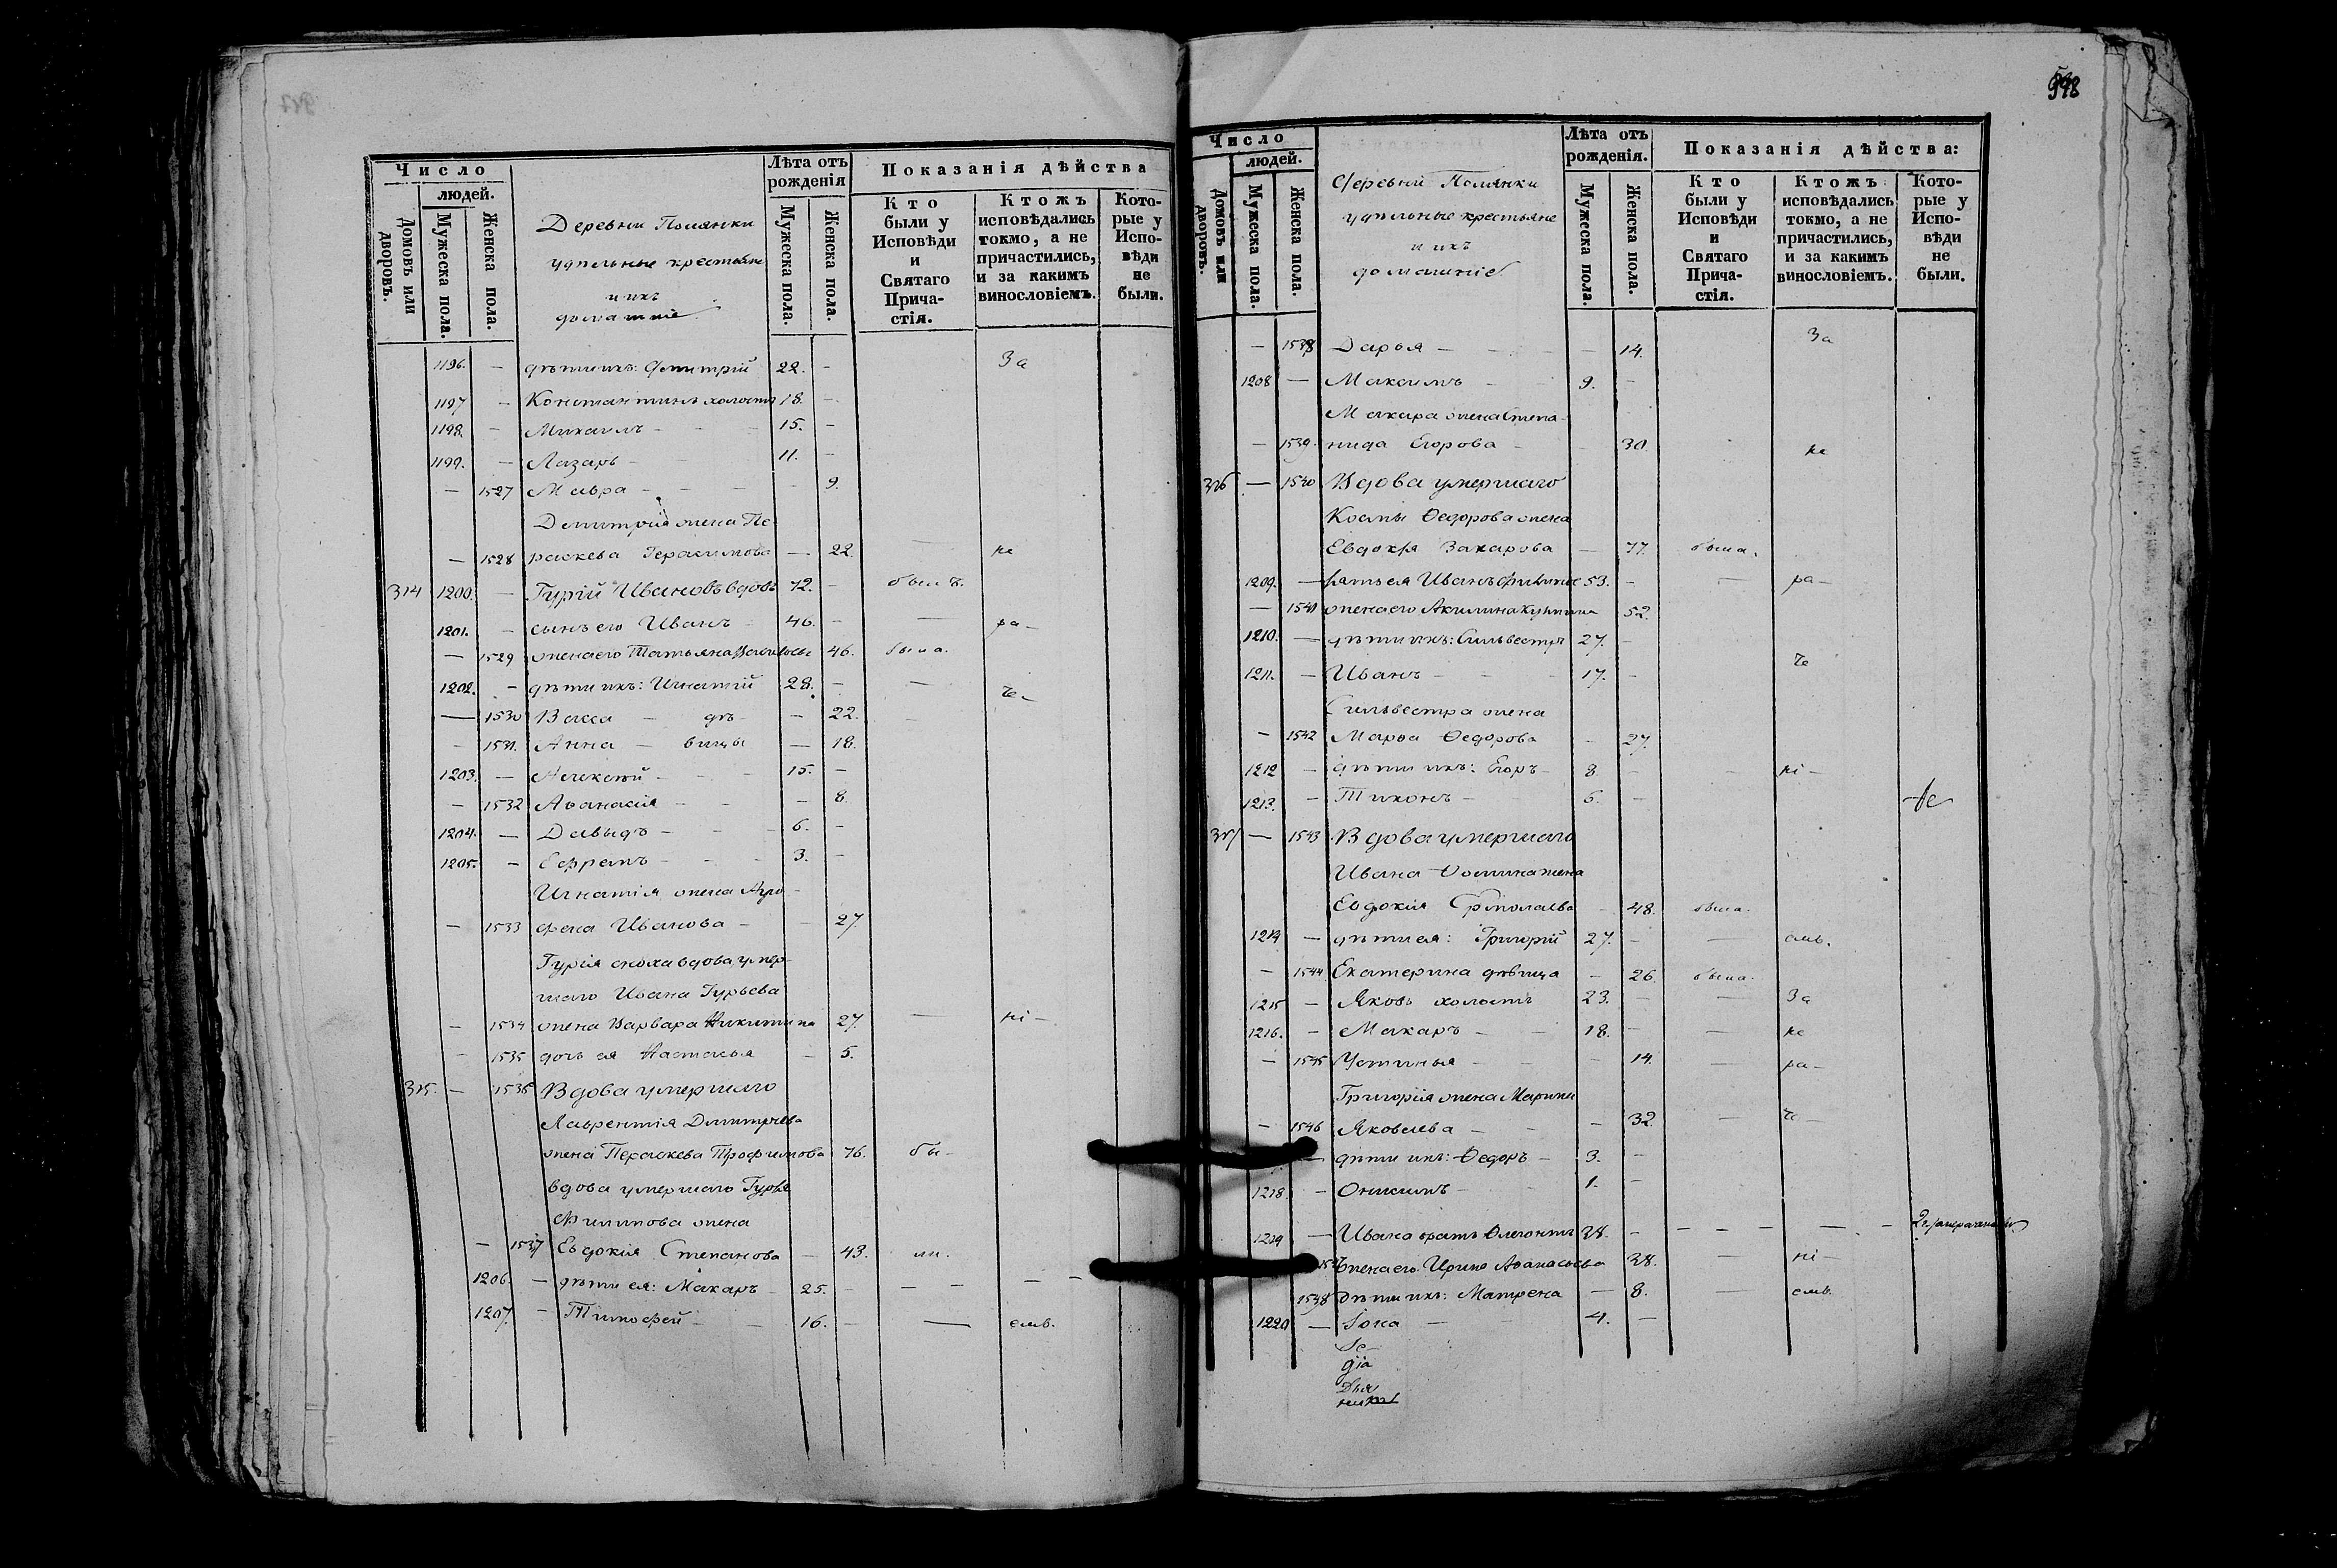 Число
людей.
Домовъ или дворовъ.
Мужеска пола.
Женска пола.
Деревни Полянки
удѣльные крестьяне
и ихъ
домашніе
Лѣта отъ
рожденія
Мужеска пола.
Женска пола.
Показанія дѣйства
Кто
были у
Исповѣди
и
Святаго
Прича-
стія.
Ктожъ
исповѣдались
токмо, а не
причастились,
и за какимъ
винословіемъ.
Кото-
рые у
Испо-
вѣди
не
были.
1196. - дѣти ихъ: Димитрій 22. - За
1197 - Константинъ холостъ 18. -
1198. - Михаилъ - - 15. -
1199. - Лазарь - 11. -
- 1527 Мавра - - - - 9.
Димитрія жена Пе-
- 1528 раскева Герасимова - 22. - не
314 1200. - Гурій Ивановъ вдовъ 72. - былъ.
1201. - сынъ его Иванъ - 46. - - ра-
- 1529 жена его Татьяна 46. была.
1202. - дѣти ихъ: Игнатій 28. - - че-
- 1530 Васса - дѣ- - 22.
- 1531. Анна - вицы - 18.
1203. - Алексѣй - - 15. -
- 1532 Аѳанасія - - - 8.
1204. - Давыдъ - - 6. -
1205. - Ефремъ - - - 3. -
Игнатія жена Агро-
- 1533 фена Иванова - - 27.
Гурія сноха вдова умер-
шаго Ивана Гурьева
- 1534 жена Варвара Никитина 27. - ні-
- 1535 дочь ея Настасья - 5.
315. - 1536 Вдова умершаго
Лаврентія Димитріева
жена Пераскева Трофимова 76. бы-
вдова умершаго Гурья
Филиппова жена
- 1537 Евдокія Степанова - 43. ли.
1206. - дѣти ея: Макаръ - 25. - - - - -
1207. - Тимофей - - 16. - - емъ.
598
Число
людей.
Домовъ или дворовъ.
Мужеска пола.
Женска пола.
Деревни Полянки
удѣльные крестьяне
и ихъ
домашніе
Лѣта отъ
рожденія.
Мужеска пола.
Женска пола.
Показанія дѣйства:
Кто
были у
Исповѣди
и
Святаго
Прича-
стія.
Ктожъ
исповѣдались
токмо, а не
причастились,
и за какимъ
винословіемъ.
Кото-
рые у
Испо-
вѣди
не
были.
- 1538 Дарья - - - - 14. За
1208 - Максимъ - 9. -
Макара жена Степа-
- 1539. нида Егорова - - 30. не
316 - 1540 Вдова умершаго
Козмы Ѳедорова жена
Евдокія Захарова - 77. была.
1209. - братъ ея Иванъ 53. - - ра-
- 1541 жена его Акилина 52.
1210. - дѣти ихъ: Сильвестръ 27. -
1211. - Иванъ - - - 17. - че
Сильвестра жена
- 1542 Марѳа Ѳедорова - 27.
1212 - дѣти ихъ: Егоръ - 8. - - ні-
1213. - Тихонъ - - 5. -
317 - 1543 Вдова умершаго
Ивана Ѳомина жена
Евдокія - 48. была.
1214 - дѣти ея: Григорій 27. - - емъ.
- 1544 Екатерина дѣвица - 26. была.
1215 - Яковъ холостъ 23. - - За
1216. - Макаръ - - 18. - - не
- 1545 Устинья - - - 14. - ра-
Григорія жена Марина
- 1546 Яковлева - - - 32. - че
- дѣти ихъ: Ѳедоръ - 3. -
1218. - Онисимъ - - 1. -
1219 - Ивана братъ 38. - - - - - -
жена его Ирина Аѳанасьева 38. - ні-
1548 дѣти ихъ: Матрена - 8. - емъ.
1220 - Іона - - 4. -